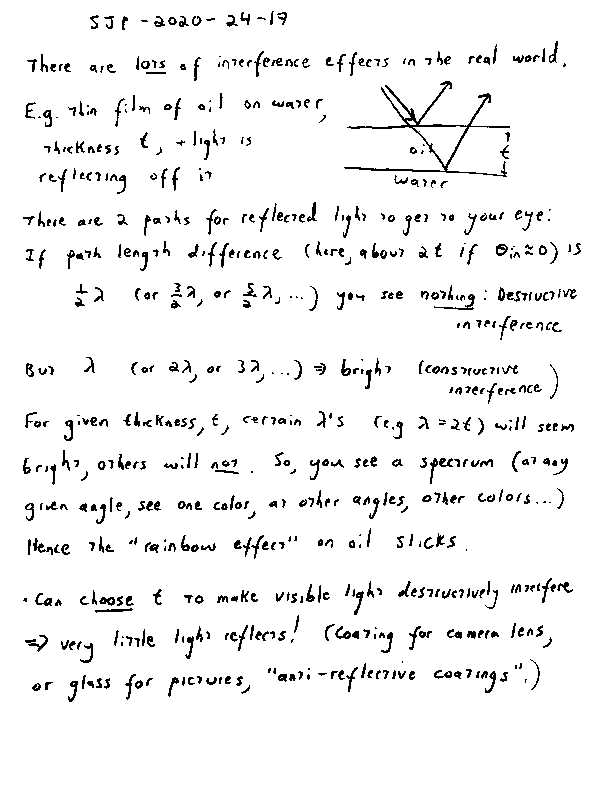 SJP - 2020 - 24 - 17
There are lots of interference effects in the real world.
E.g. thin film of oil on water,
thickness t, + light is
reflecting off it
oil
t
water
There are 2 paths for reflected light to get to your eye:
If path length difference (here, about 2t if θin≈0) is
½λ (or 3/2 λ, or 5/2 λ, ...) you see nothing: Destructive
interference
But λ (or 2λ, or 3λ, ...) ⇒ bright (constructive
interference)
For given thickness, t, certain λ's (e.g λ=2t) will seem
bright, others will not. So, you see a spectrum (at any
given angle, see one color, at other angles, other colors...)
Hence the "rainbow effect" on oil slicks.
· Can choose t to make visible light destructively interfere
⇒ very little light reflects! (Coating for camera lens,
or glass for pictures, "anti-reflective coatings".)